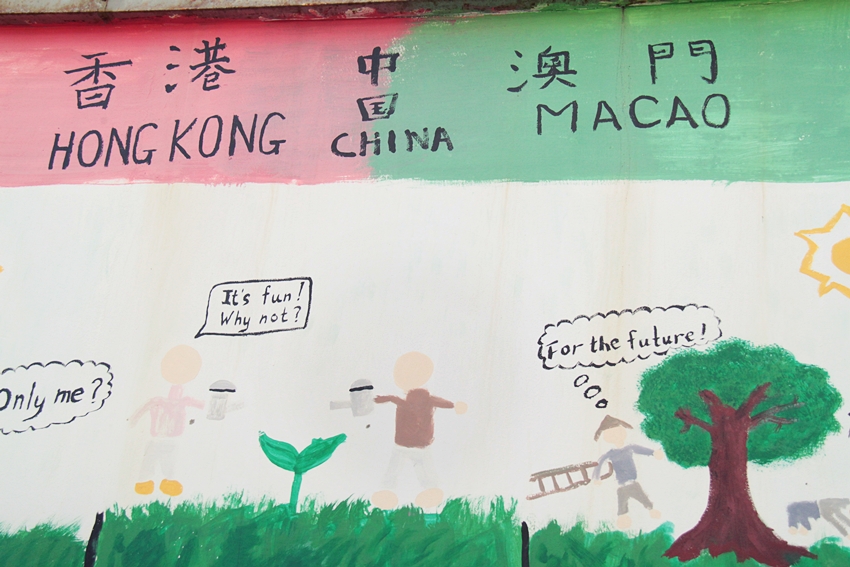 香港
HONG KONG
中
国
CHINA
澳門
MACAO
It's fun!
Why not?
For the future!
Only me?